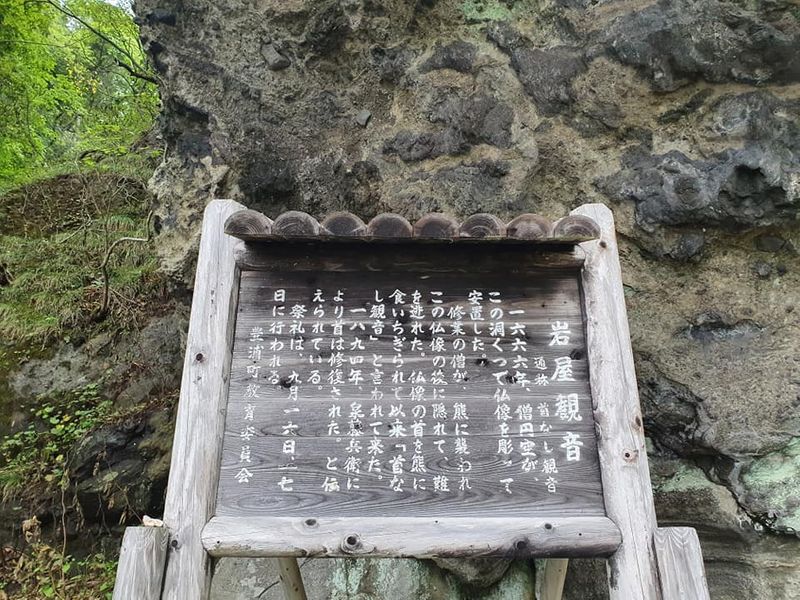 岩屋観音
通称 首なし観音
一六六六年、僧円空が、
この洞くつで仏像を彫って
安置した。
修業の僧が、熊に襲われ
この仏像の後に隠れて、難
を逃れた。仏像の首を熊に
食いちぎられて以来「首な
し観音」と言われて来た。
一八九四年、泉藤兵衛に
より首は修復された。と伝
えられている。
祭礼は、九月一六日、一七
日に行われる。
豊浦町教育委員会